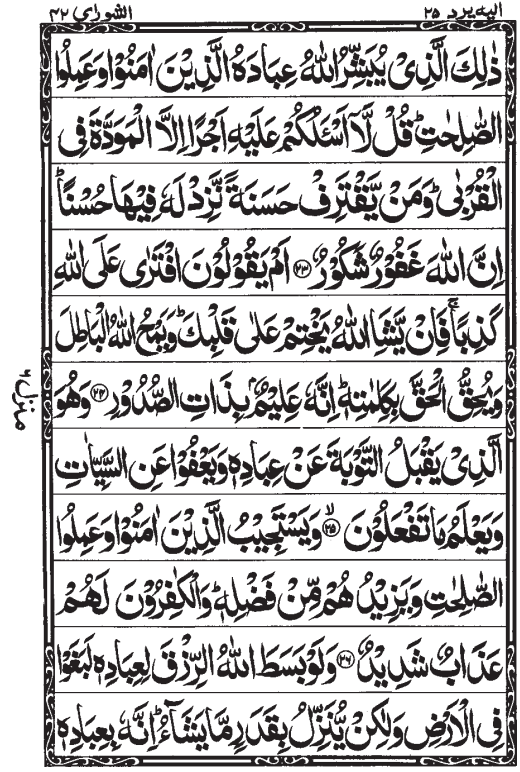 اليه يرد ٢٥
الشورٰى ٤٢
ذٰلِكَ الَّذِىْ يُبَشِّرُ اللّٰهُ عِبَادَهُ الَّذِيْنَ اٰمَنُوْا وَعَمِلُوا
الصّٰلِحٰتِ ؕ قُلْ لَّاۤ اَسْئَلُكُمْ عَلَيْهِ اَجْرًا اِلَّا الْمَوَدَّةَ فِى
الْقُرْبٰى ؕ وَمَنْ يَّقْتَرِفْ حَسَنَةً نَّزِدْ لَهٗ فِيْهَا حُسْنًا ؕ
اِنَّ اللّٰهَ غَفُوْرٌ شَكُوْرٌ ﴿٢٣﴾ اَمْ يَقُوْلُوْنَ افْتَرٰى عَلَى اللّٰهِ
كَذِبًا ۚ فَاِنْ يَّشَاِ اللّٰهُ يَخْتِمْ عَلٰى قَلْبِكَ ؕ وَيَمْحُ اللّٰهُ الْبَاطِلَ
وَيُحِقُّ الْحَقَّ بِكَلِمٰتِهٖ ؕ اِنَّهٗ عَلِيْمٌۢ بِذَاتِ الصُّدُوْرِ ﴿٢٤﴾ وَهُوَ
الَّذِىْ يَقْبَلُ التَّوْبَةَ عَنْ عِبَادِهٖ وَيَعْفُوْا عَنِ السَّيِّاٰتِ
وَيَعْلَمُ مَا تَفْعَلُوْنَ ۙ﴿٢٥﴾ وَيَسْتَجِيْبُ الَّذِيْنَ اٰمَنُوْا وَعَمِلُوا
الصّٰلِحٰتِ وَيَزِيْدُهُمْ مِّنْ فَضْلِهٖ ؕ وَالْكٰفِرُوْنَ لَهُمْ
عَذَابٌ شَدِيْدٌ ﴿٢٦﴾ وَلَوْ بَسَطَ اللّٰهُ الرِّزْقَ لِعِبَادِهٖ لَبَغَوْا
فِى الْاَرْضِ وَلٰكِنْ يُّنَزِّلُ بِقَدَرٍ مَّا يَشَآءُ ؕ اِنَّهٗ بِعِبَادِهٖ
منزل ٦